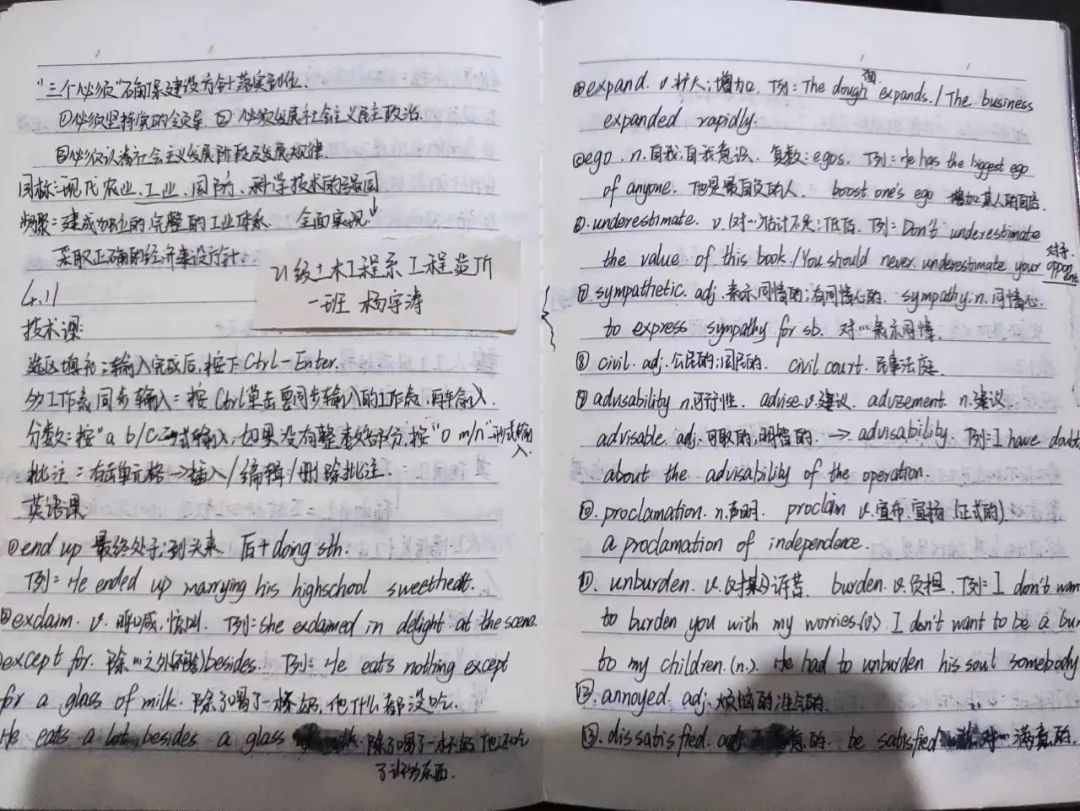 "三个必须"确保建设方针落实到位.
①必须坚持党的全领导 ②必须发展社会主义民主政治.
③必须认清社会主义发展阶段及发展规律.
目标:现代农业、工业、国防、科学技术的强国
步骤:建成独立的完整的工业体系. 全面实现
采取正确的经济建设方针.
21级土木工程系工程造价
一班 杨宇涛
4.11
技术课:
选区填充:输入完成后,按下Ctrl-Enter.
多工作表同步输入:按Ctrl单击要同步输入的工作表,再输入.
分数:按"a b/c"形式输入,如果没有整数部分,按"0 m/n"形式输入
批注:右击单元格→插入/编辑/删除批注.
英语课
①end up 最终处于;到头来. 后+doing sth.
下列:He ended up marrying his highschool sweetheart.
②exclaim. v. 呼喊,惊叫. 下列:she exclaimed in delight at the scene.
except for. 除…之外 besides. 下列:He eats nothing except
for a glass of milk. 除了喝了一杯奶,他什么都没吃.
He eats a lot besides a glass 除了喝了一杯奶 他还吃
了许多东西.
④expand. v 扩大;增加. 下列:The dough 面 expands./The business
expanded rapidly.
⑤ego. n.自我;自我意识. 复数:egos. 下列:He has the biggest ego
of anyone. 他是最自负的人. boost one's ego 增加某人的自信.
⑥.underestimate. v.对…估计不足;低估. 下列:Don't underestimate
the value of this book./You should never underestimate your opponent 对手.
⑦ sympathetic. adj. 表示同情的;有同情心的. sympathy. n. 同情心.
to express sympathy for sb. 对…表示同情.
⑧ civil. adj. 公民的;国民的. civil court. 民事法庭.
⑨ advisability n.可行性. advise. v.建议. advizement. n.建议.
advisable. adj.可取的,明智的. → advisability. 下列:I have doubt
about the advisability of the operation.
⑩. proclamation. n.声明. proclaim v.宣布.宣扬 (正式的)
a proclamation of independence.
⑪. unburden. v.对某人诉苦. burden. v.负担. 下列:I don't wan
to burden you with my worries.(v.) I don't want to be a bur
to my children.(n.) He had to unburden his soul somebody
⑫.annoyed. adj. 烦恼的;生气的.
⑬. dissatisfied. 的. be satisfied 对…满意的.